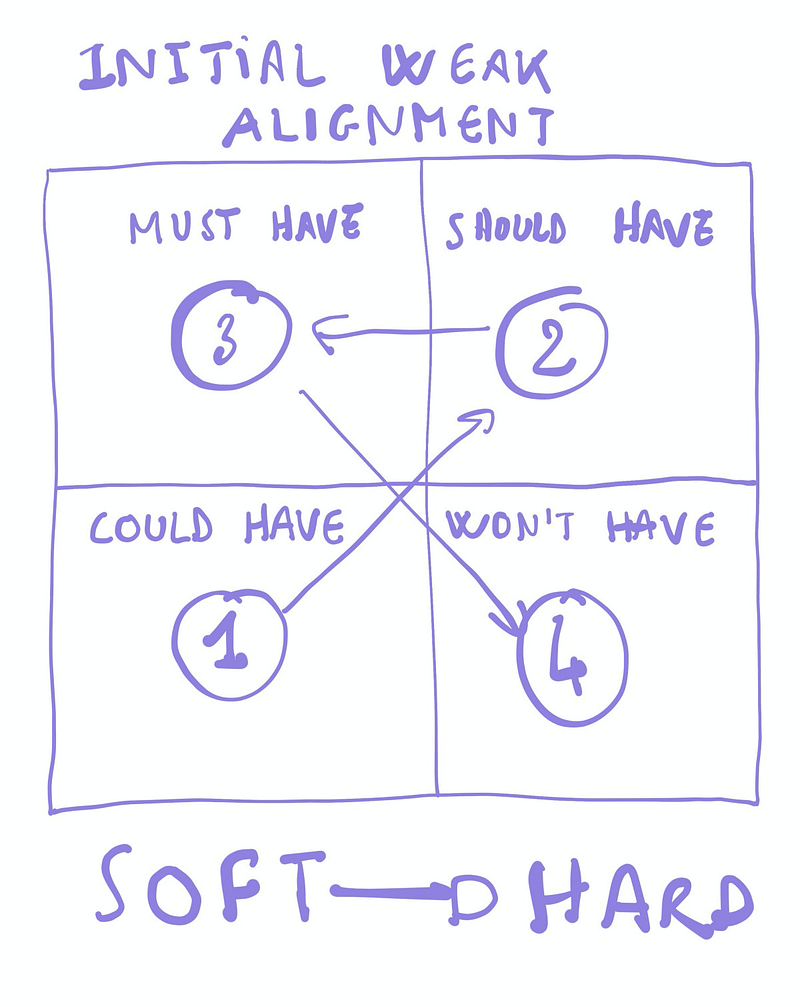 INITIAL WEAK
ALIGNMENT
MUST HAVE
SHOULD HAVE
3
2
COULD HAVE
WON'T HAVE
1
4
SOFT → HARD